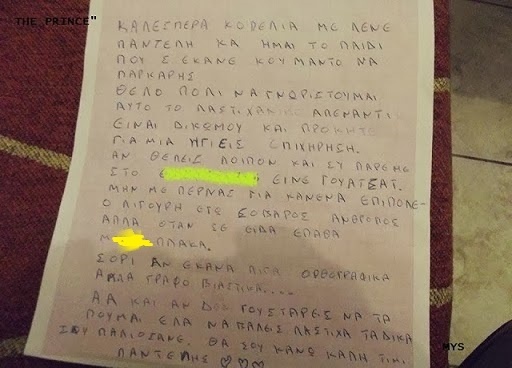 THE_PRINCE"
ΚΑΛΕΣΠΕΡΑ ΚΟΒΕΛΙΑ ΜΕ ΛΕΝΕ
ΠΑΝΤΕΛΗ ΚΑ ΗΜΑΙ ΤΟ ΠΑΙΔΙ
ΠΟΥ Σ ΕΚΑΝΕ ΚΟΥΜΑΝΤΟ ΝΑ
ΠΑΡΚΑΡΗΣ
ΘΕΛΟ ΠΟΛΙ ΝΑ ΓΝΩΡΙΣΤΟΥΜΑΙ
ΑΥΤΟ ΤΟ ΛΑΣΤΙΧΑΔΙΚΟ ΑΠΕΝΑΝΤΙ
ΕΙΝΑΙ ΔΙΚΩΜΟΥ ΚΑΙ ΠΡΟΚΗΤΕ
ΓΙΑ ΜΙΑ ΥΓΙΕΙΣ ΕΠΙΧΗΡΗΣΗ.
ΑΝ ΘΕΛΕΙΣ ΛΟΙΠΟΝ ΚΑΙ ΣΥ ΠΑΡΕ ΜΕ
ΣΤΟ ΕΙΝΕ ΓΟΥΑΤΣΑΠ.
ΜΗΝ ΜΕ ΠΕΡΝΑΣ ΓΙΑ ΚΑΝΕΝΑ ΕΠΙΠΟΛΕ-
Ο ΛΙΓΟΥΡΗ ΕΙΣ ΣΟΒΑΡΟΣ ΑΝΘΡΟΠΟΣ
ΑΛΛΑ ΟΤΑΝ ΣΕ ΕΙΔΑ ΕΠΑΘΑ
Μ ΠΛΑΚΑ.
ΣΟΡΙ ΑΝ ΕΚΑΝΑ ΛΙΓΑ ΟΡΘΟΓΡΑΦΙΚΑ
ΑΛΛΑ ΓΡΑΦΟ ΒΙΑΣΤΙΚΑ....
ΑΑ ΚΑΙ ΑΝ ΔΕΝ ΓΟΥΣΤΑΡΕΙΣ ΝΑ ΤΑ
ΠΟΥΜΑΙ ΕΛΑ ΝΑ ΒΑΛΕΙΣ ΛΑΣΤΙΧΑ ΤΑ ΔΙΚΑ
ΣΟΥ ΠΑΛΙΟΣΑΝΕ. ΘΑ ΣΟΥ ΚΑΝΩ ΚΑΛΗ ΤΙΜΙ
ΠΑΝΤΕΛΗΣ ♡♡♡
MYS